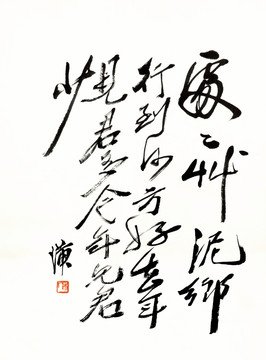 處々艸泥鄉
行到何方好去年
見君多今年見君
少